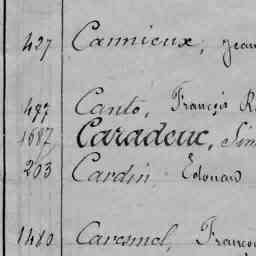 427 Cannieux, Jean
497 Canto, François R
1687 Caradeuc, Sim
203 Cardin, Edouard
1480 Caresmel, Franço